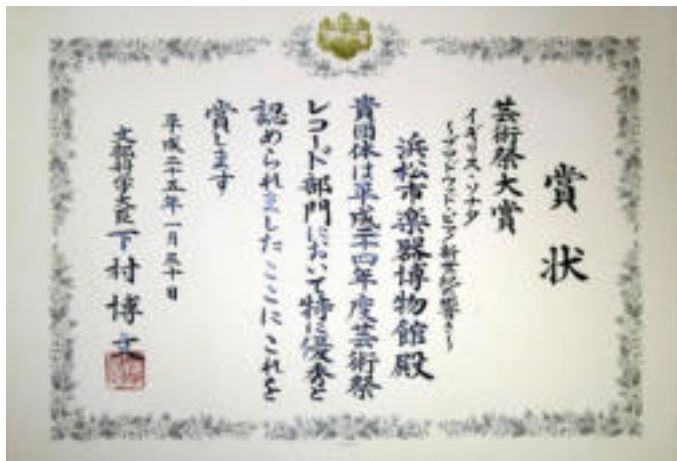 賞状
芸術祭大賞
イギリス・ソナタ
～ブロードウッド・ピアノ新古絵響き～
浜松市楽器博物館殿
貴団体は平成二十四年度芸術祭
レコード部門において特に優秀と
認められましたここにこれを
賞します
平成二十五年一月三十日
文部科学大臣 下村博文